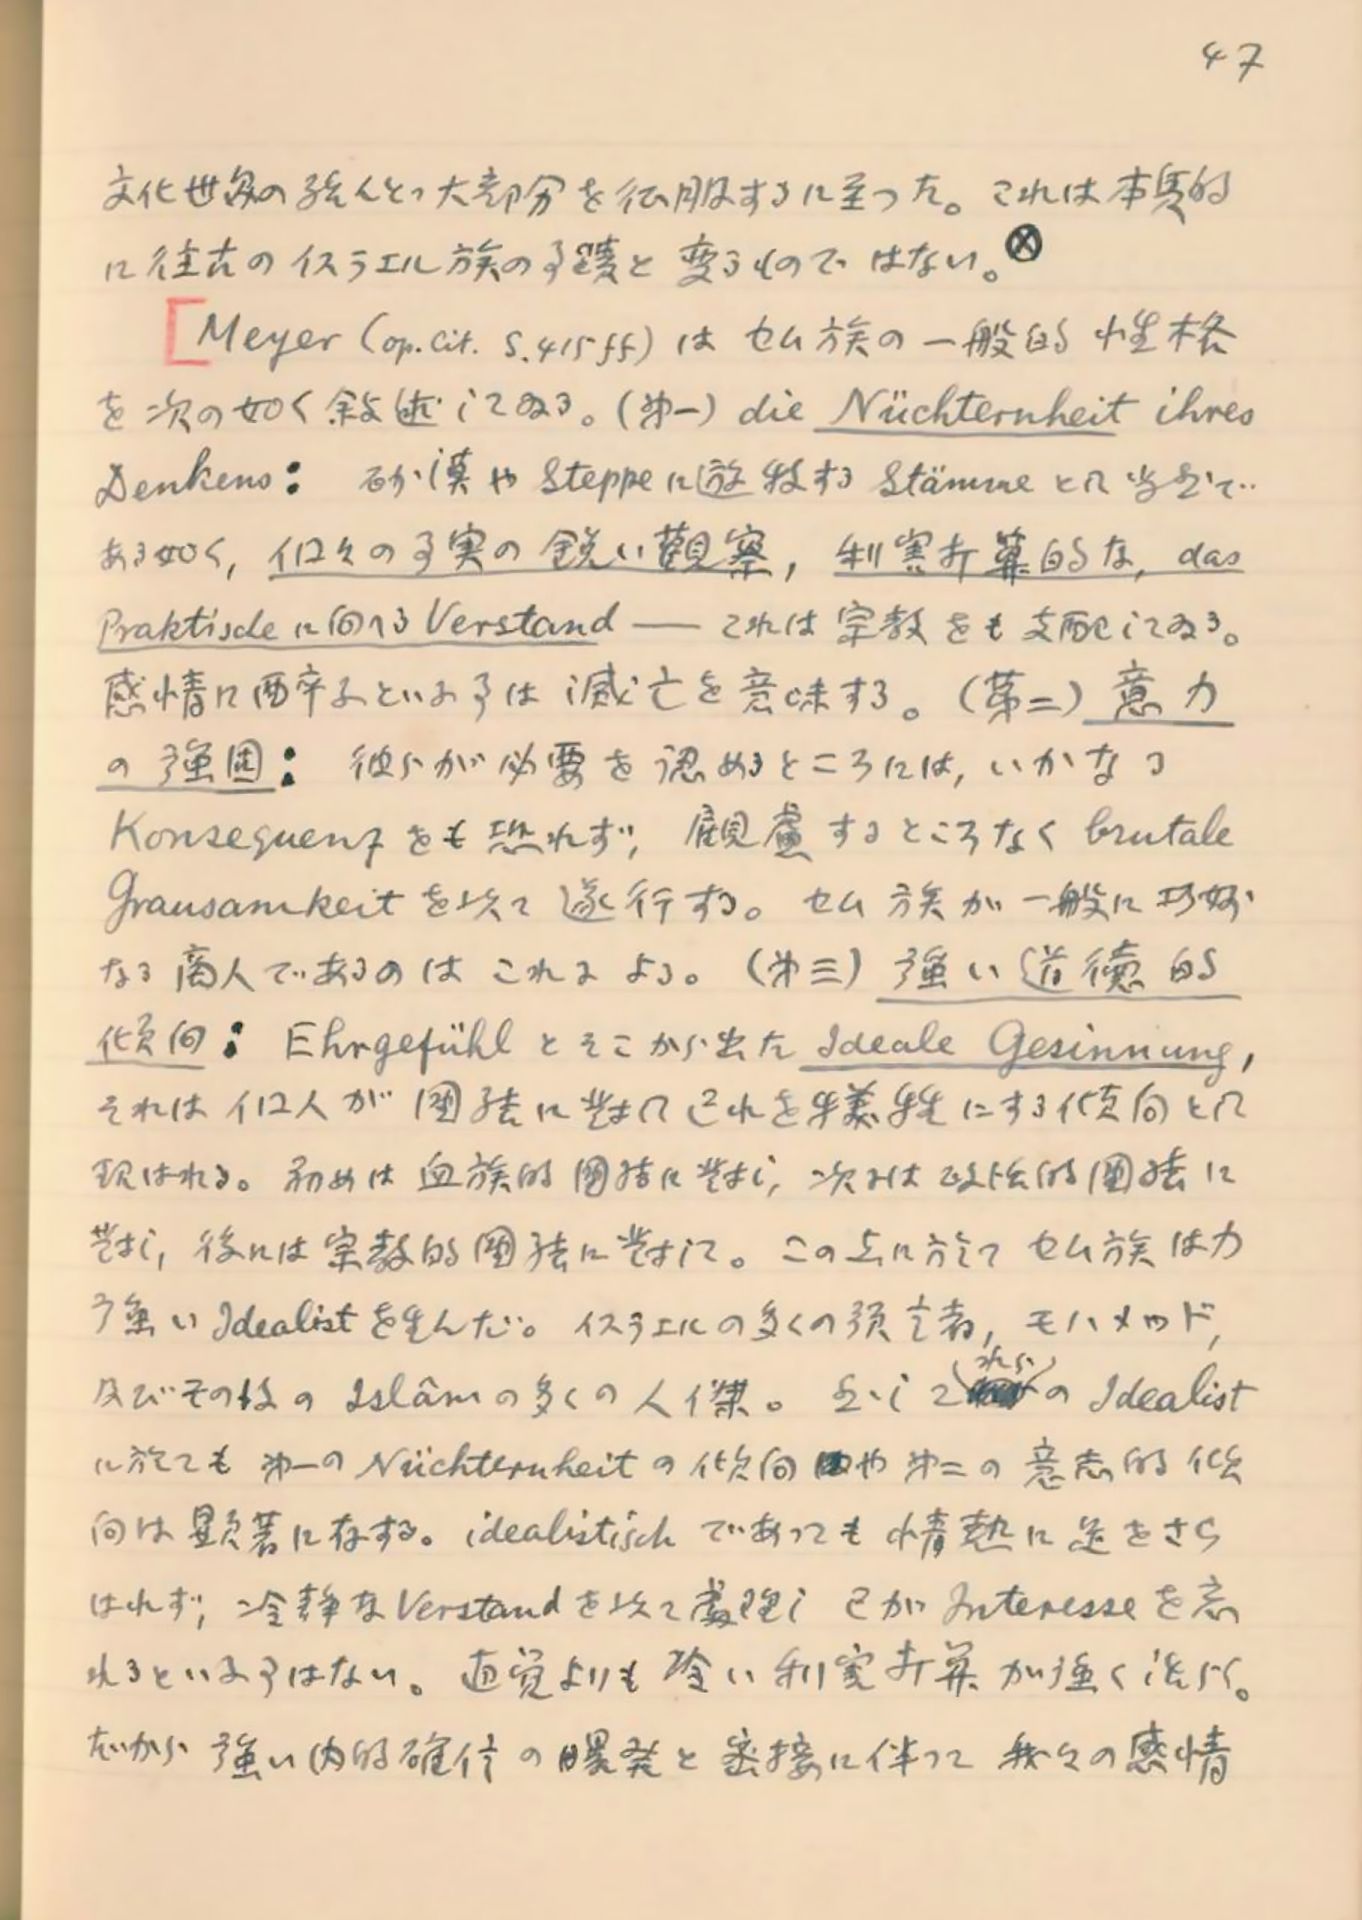 47
文化世界の殆んどっ大部分を征服するに至った。これは本質的
に往古のイスラエル族の事蹟と変るものではない。Ⓧ
[Meyer (op. cit. S. 415 ff) は セム族の一般的性格
を次の如く敘述してゐる。(第一) die Nüchternheit ihres
Denkens: 砂漠や Steppe に遊牧する Stämme として当然で
ある如く, 個々の事実の鋭い觀察, 利害打算的な, das
Praktische に向へる Verstand — これは宗教をも支配してゐる。
感情に酉卒ふといふ事は滅亡を意味する。(第二) 意力
の強固: 彼らが必要を認めるところには, いかなる
Konsequenz をも恐れず, 顧慮するところなく brutale
Grausamkeit を以て遂行する。セム族が一般に巧妙
なる商人であるのはこれによる。(第三) 強い道徳的
傾向: Ehrgefühl とそこから出た Ideale Gesinnung,
それは個人が團結に対して己れを犠牲にする傾向として
現はれる。初めは血族的團結に対し, 次には政治的團結に
対し, 後には宗教的團結に対して。この点に於てセム族は力
強い Idealist を生んだ。イスラエルの多くの預言者, モハメッド,
及びその後の Islâm の多くの人傑。然しこ(れら)の Idealist
に於ても第一の Nüchternheit の傾向や第二の意志的傾
向は顕著に存する。idealistisch であっても情熱に足をさら
はれず, 冷静な Verstand を以て處理し己が Interesse を忘
れるといふ事はない。直覚よりも冷い利害打算が強く働らく。
だから強い内的確信の爆発と密接に伴って我々の感情